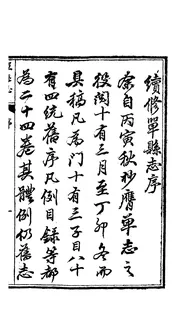 續修單縣志序
余自丙寅秋杪膺單志之
役閱十有三月至丁卯冬而
具稿凡為門十有三子目八十
有四統舊序凡例目錄等都
為二十四卷其體例仍舊志